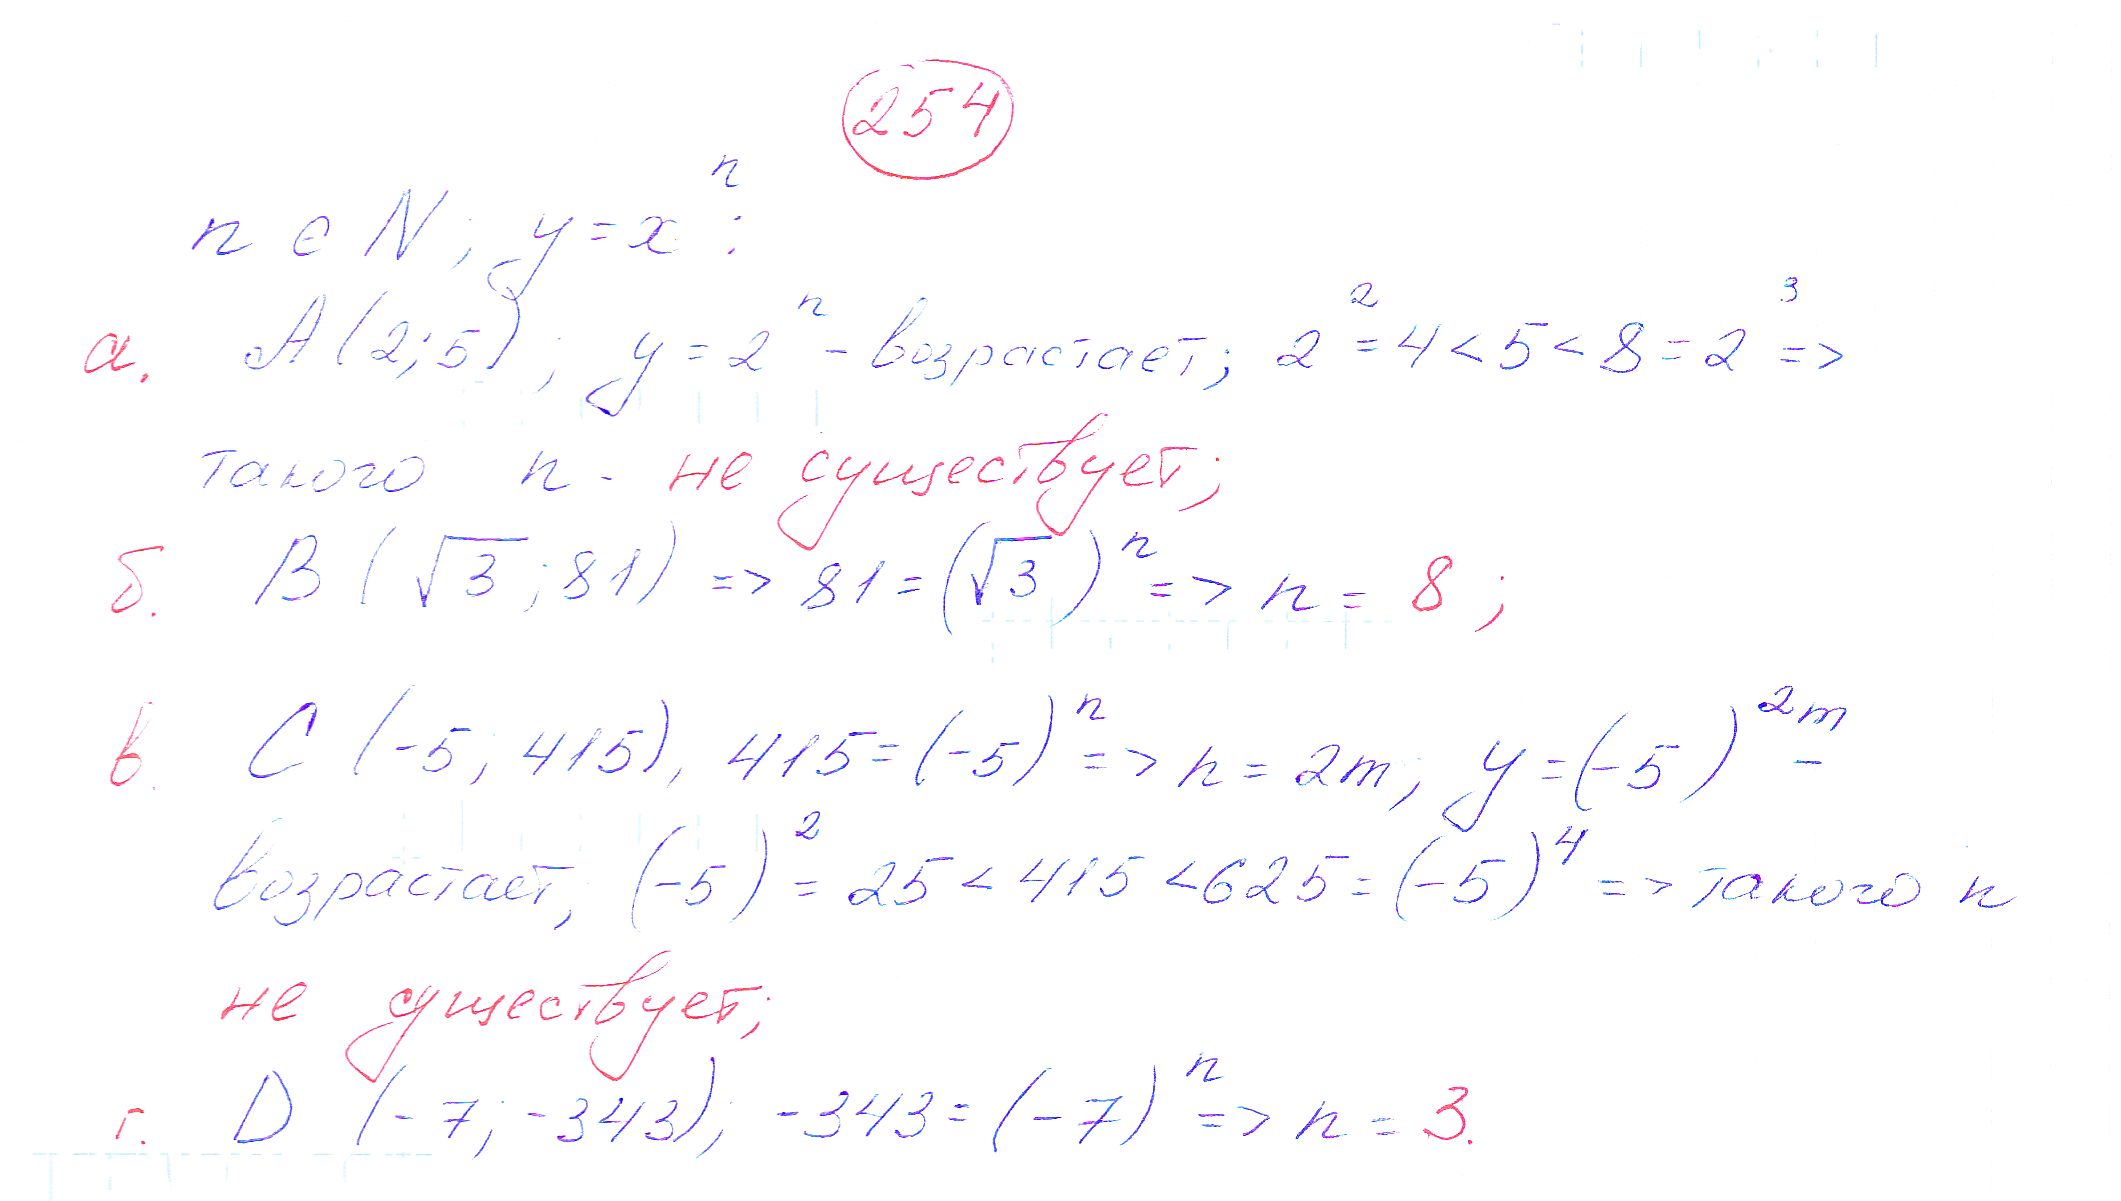 254
n ∈ N; y = x^n:
а. A(2;5); y = 2^n - возрастает; 2^2 = 4 < 5 < 8 = 2^3 =>
такого n - не существует;
б. B(√3; 81) => 81 = (√3)^n => n = 8;
в. C(-5; 415), 415 = (-5)^n => n = 2m; y = (-5)^2m -
возрастает, (-5)^2 = 25 < 415 < 625 = (-5)^4 => такого n
не существует;
г. D(-7; -343); -343 = (-7)^n => n = 3.